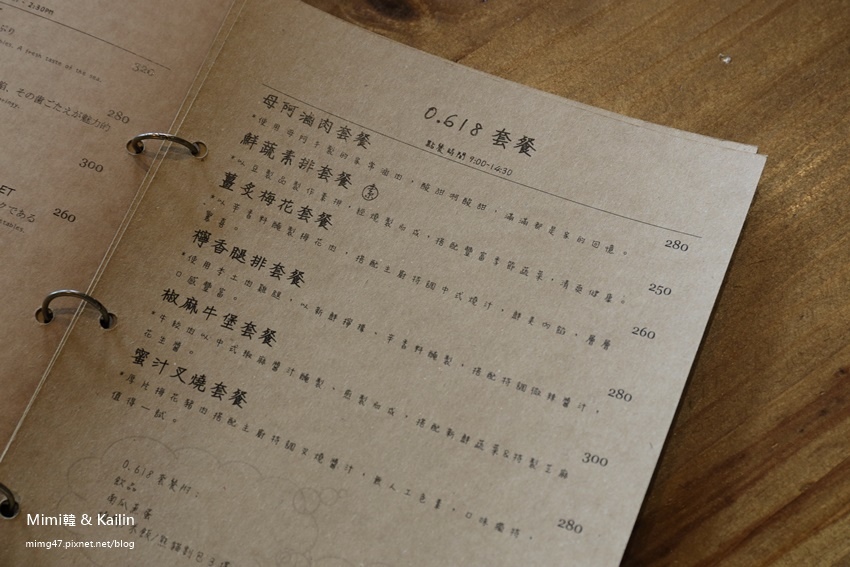 2:30PM
ぶり
A fresh taste of the sea.
320
その歯ごたえが魅力的
280
300
ET
クである
260
0.618 套餐
點餐時間 9:00-14:30
母阿滷肉套餐
280
*使用母阿手製的家常滷肉,酸甜啊酸甜,滿滿都是家的回憶。
鮮蔬素排套餐 素
250
*以豆製品製作素排,經燒製而成,搭配豐富季節蔬菜,清爽健康。
薑炙梅花套餐
260
*以辛香料醃製梅花肉,搭配主廚特調中式燒汁,鮮美肉餡,層層
驚喜。
檸香腿排套餐
280
*使用手工雞腿,以新鮮檸檬,辛香料醃製,搭配特調微辣醬汁,
口感豐富。
椒麻牛堡套餐
300
*牛絞肉以中式椒麻醬汁醃製,煎製而成,搭配新鮮蔬菜&特製芝麻
花生醬。
蜜汁叉燒套餐
280
*厚片梅花豬肉搭配主廚特調叉燒醬汁,無人工色素,口味獨特,
值得一試。
0.618 套餐附:
飲品
Mimi韓 & Kailin
mimg47.pixnet.net/blog